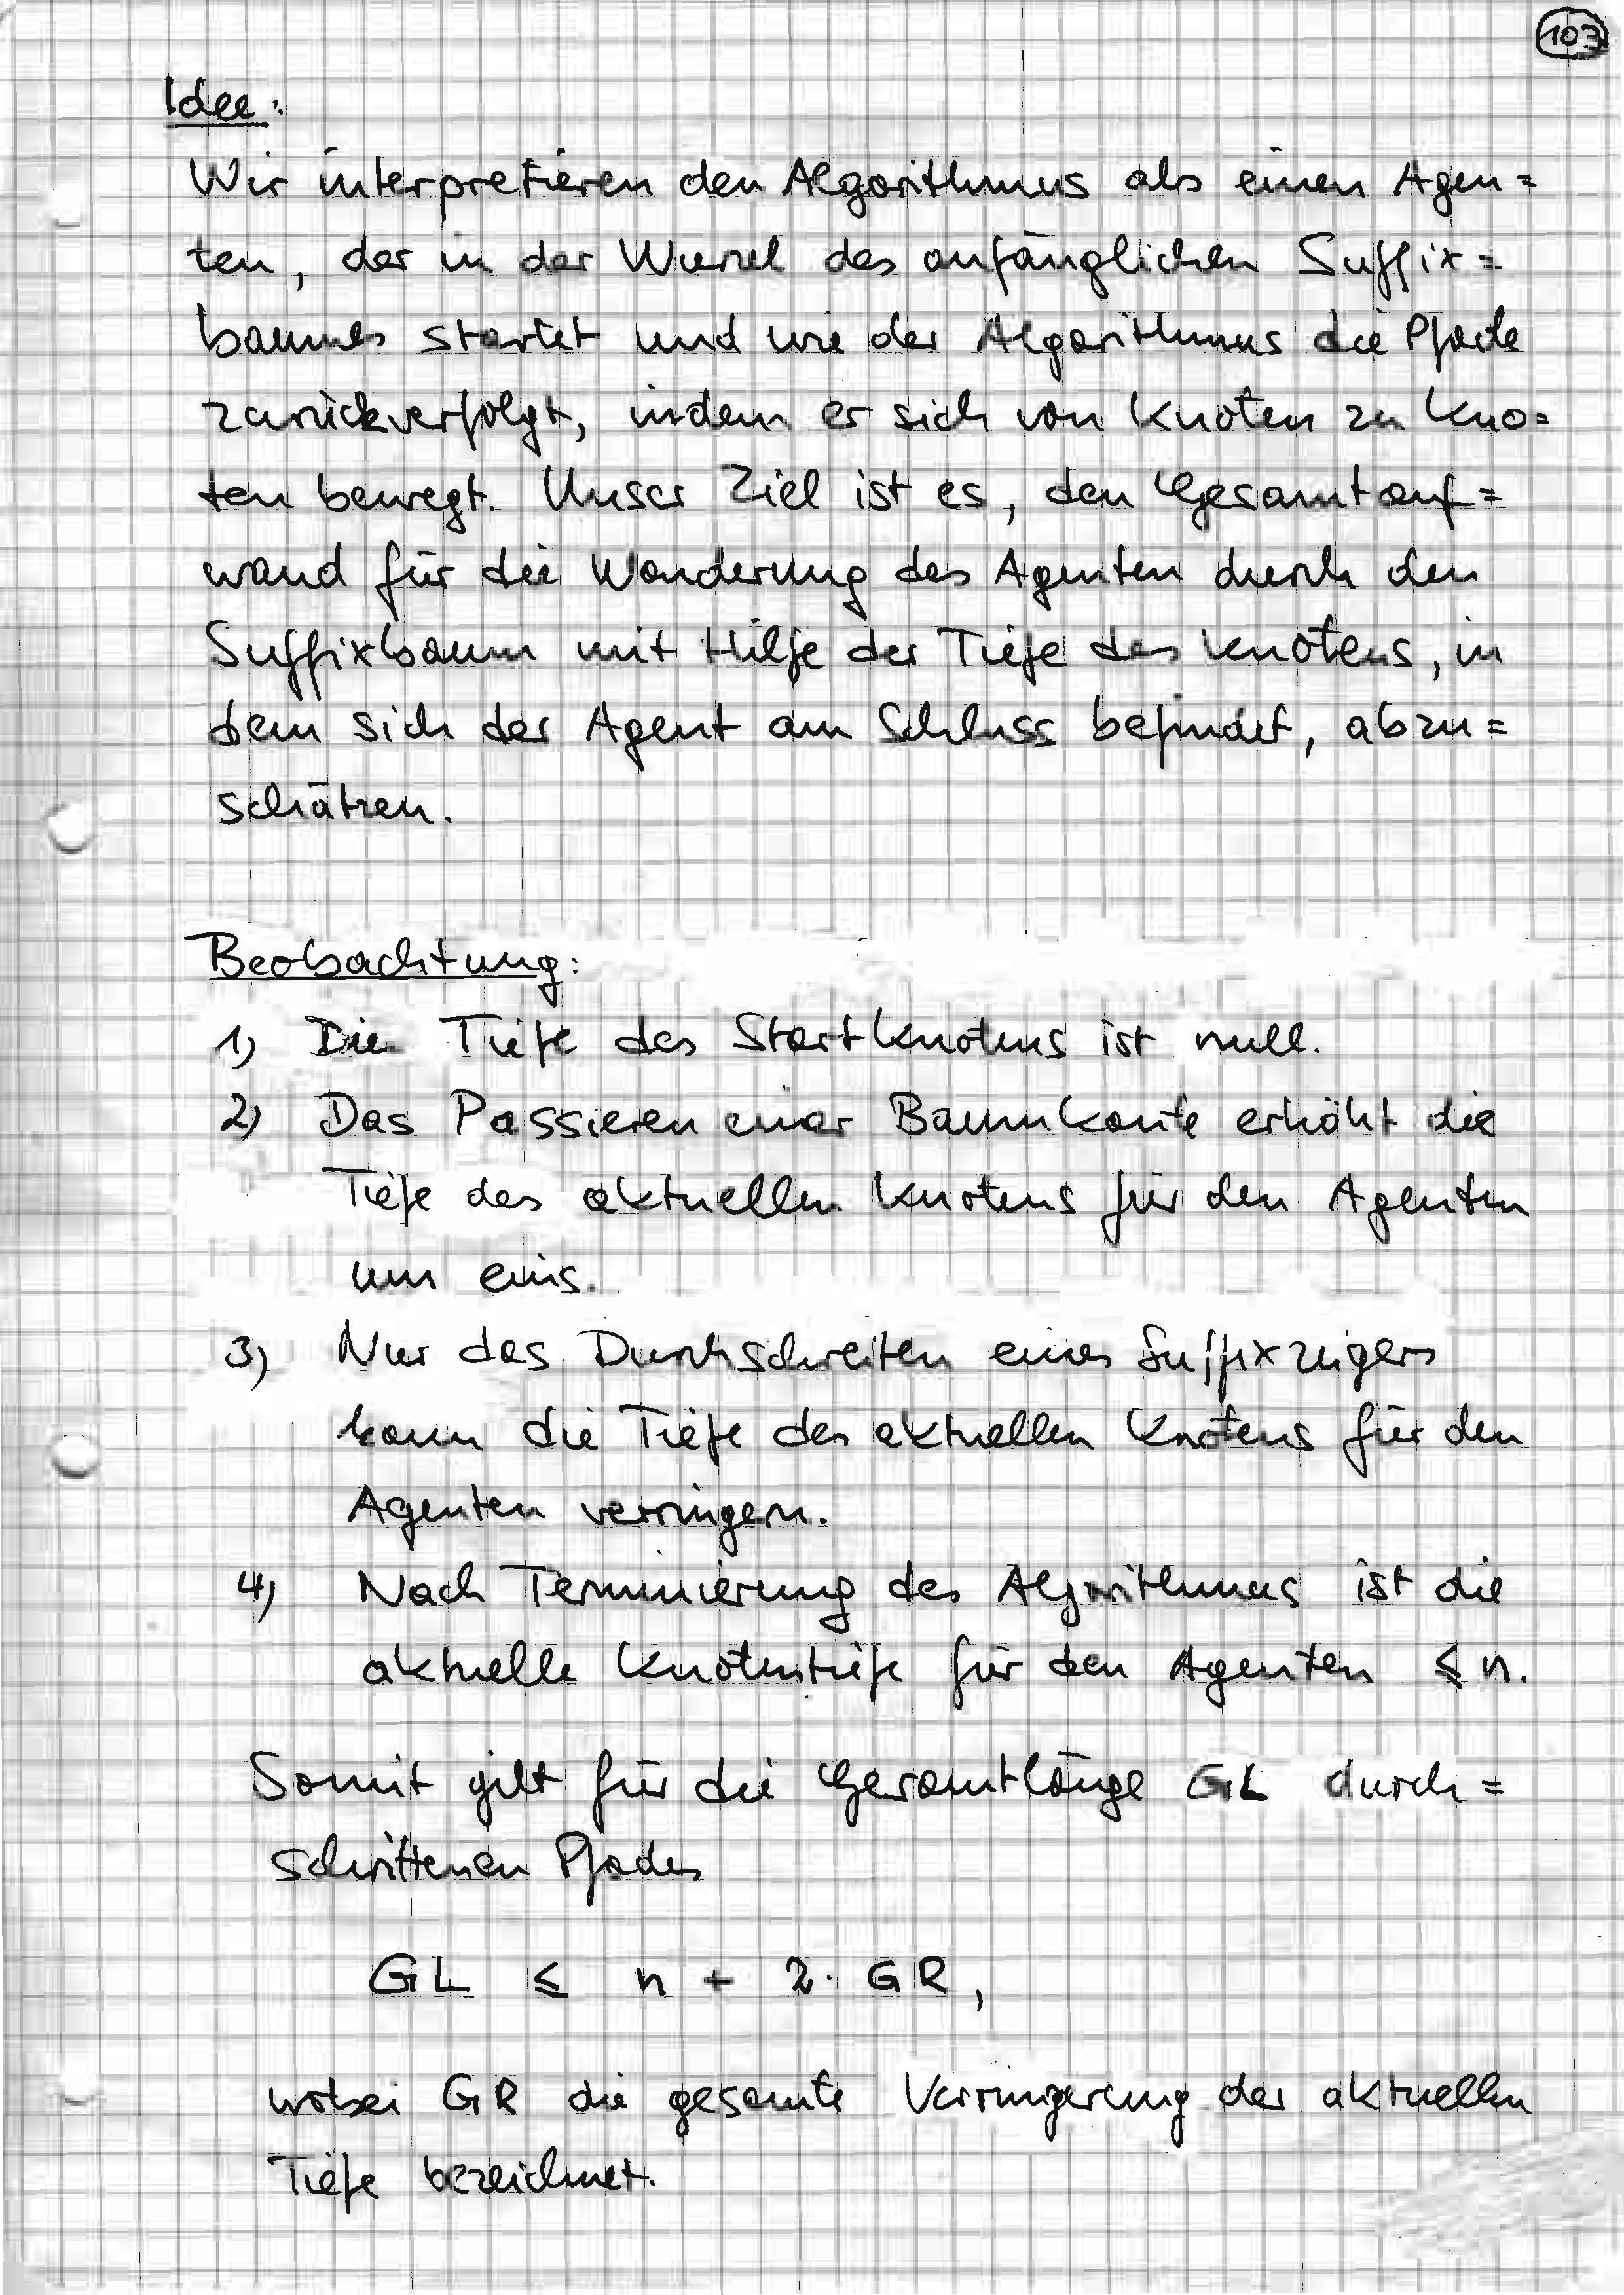 103
Idee:
Wir interpretieren den Algorithmus als einen Agen=
ten, der in der Wurzel des anfänglichen Suffix=
baumes startet und wie der Algorithmus die Pfade
zurückverfolgt, indem er sich von Knoten zu Kno=
ten bewegt. Unser Ziel ist es, den Gesamtauf=
wand für die Wanderung des Agenten durch den
Suffixbaum mit Hilfe der Tiefe des Knotens, in
dem sich der Agent am Schluss befindet, abzu=
schätzen.
Beobachtung:
1) Die Tiefe des Startknotens ist null.
2) Das Passieren einer Baumkante erhöht die
Tiefe des aktuellen Knotens für den Agenten
um eins.
3) Nur das Durchschreiten eines Suffixzeigers
kann die Tiefe des aktuellen Knotens für den
Agenten verringern.
4) Nach Terminierung des Algorithmus ist die
aktuelle Knotentiefe für den Agenten ≤ n.
Somit gilt für die Gesamtlänge GL durch=
schrittenen Pfades
GL ≤ n + 2 · GR,
wobei GR die gesamte Verringerung der aktuellen
Tiefe bezeichnet.